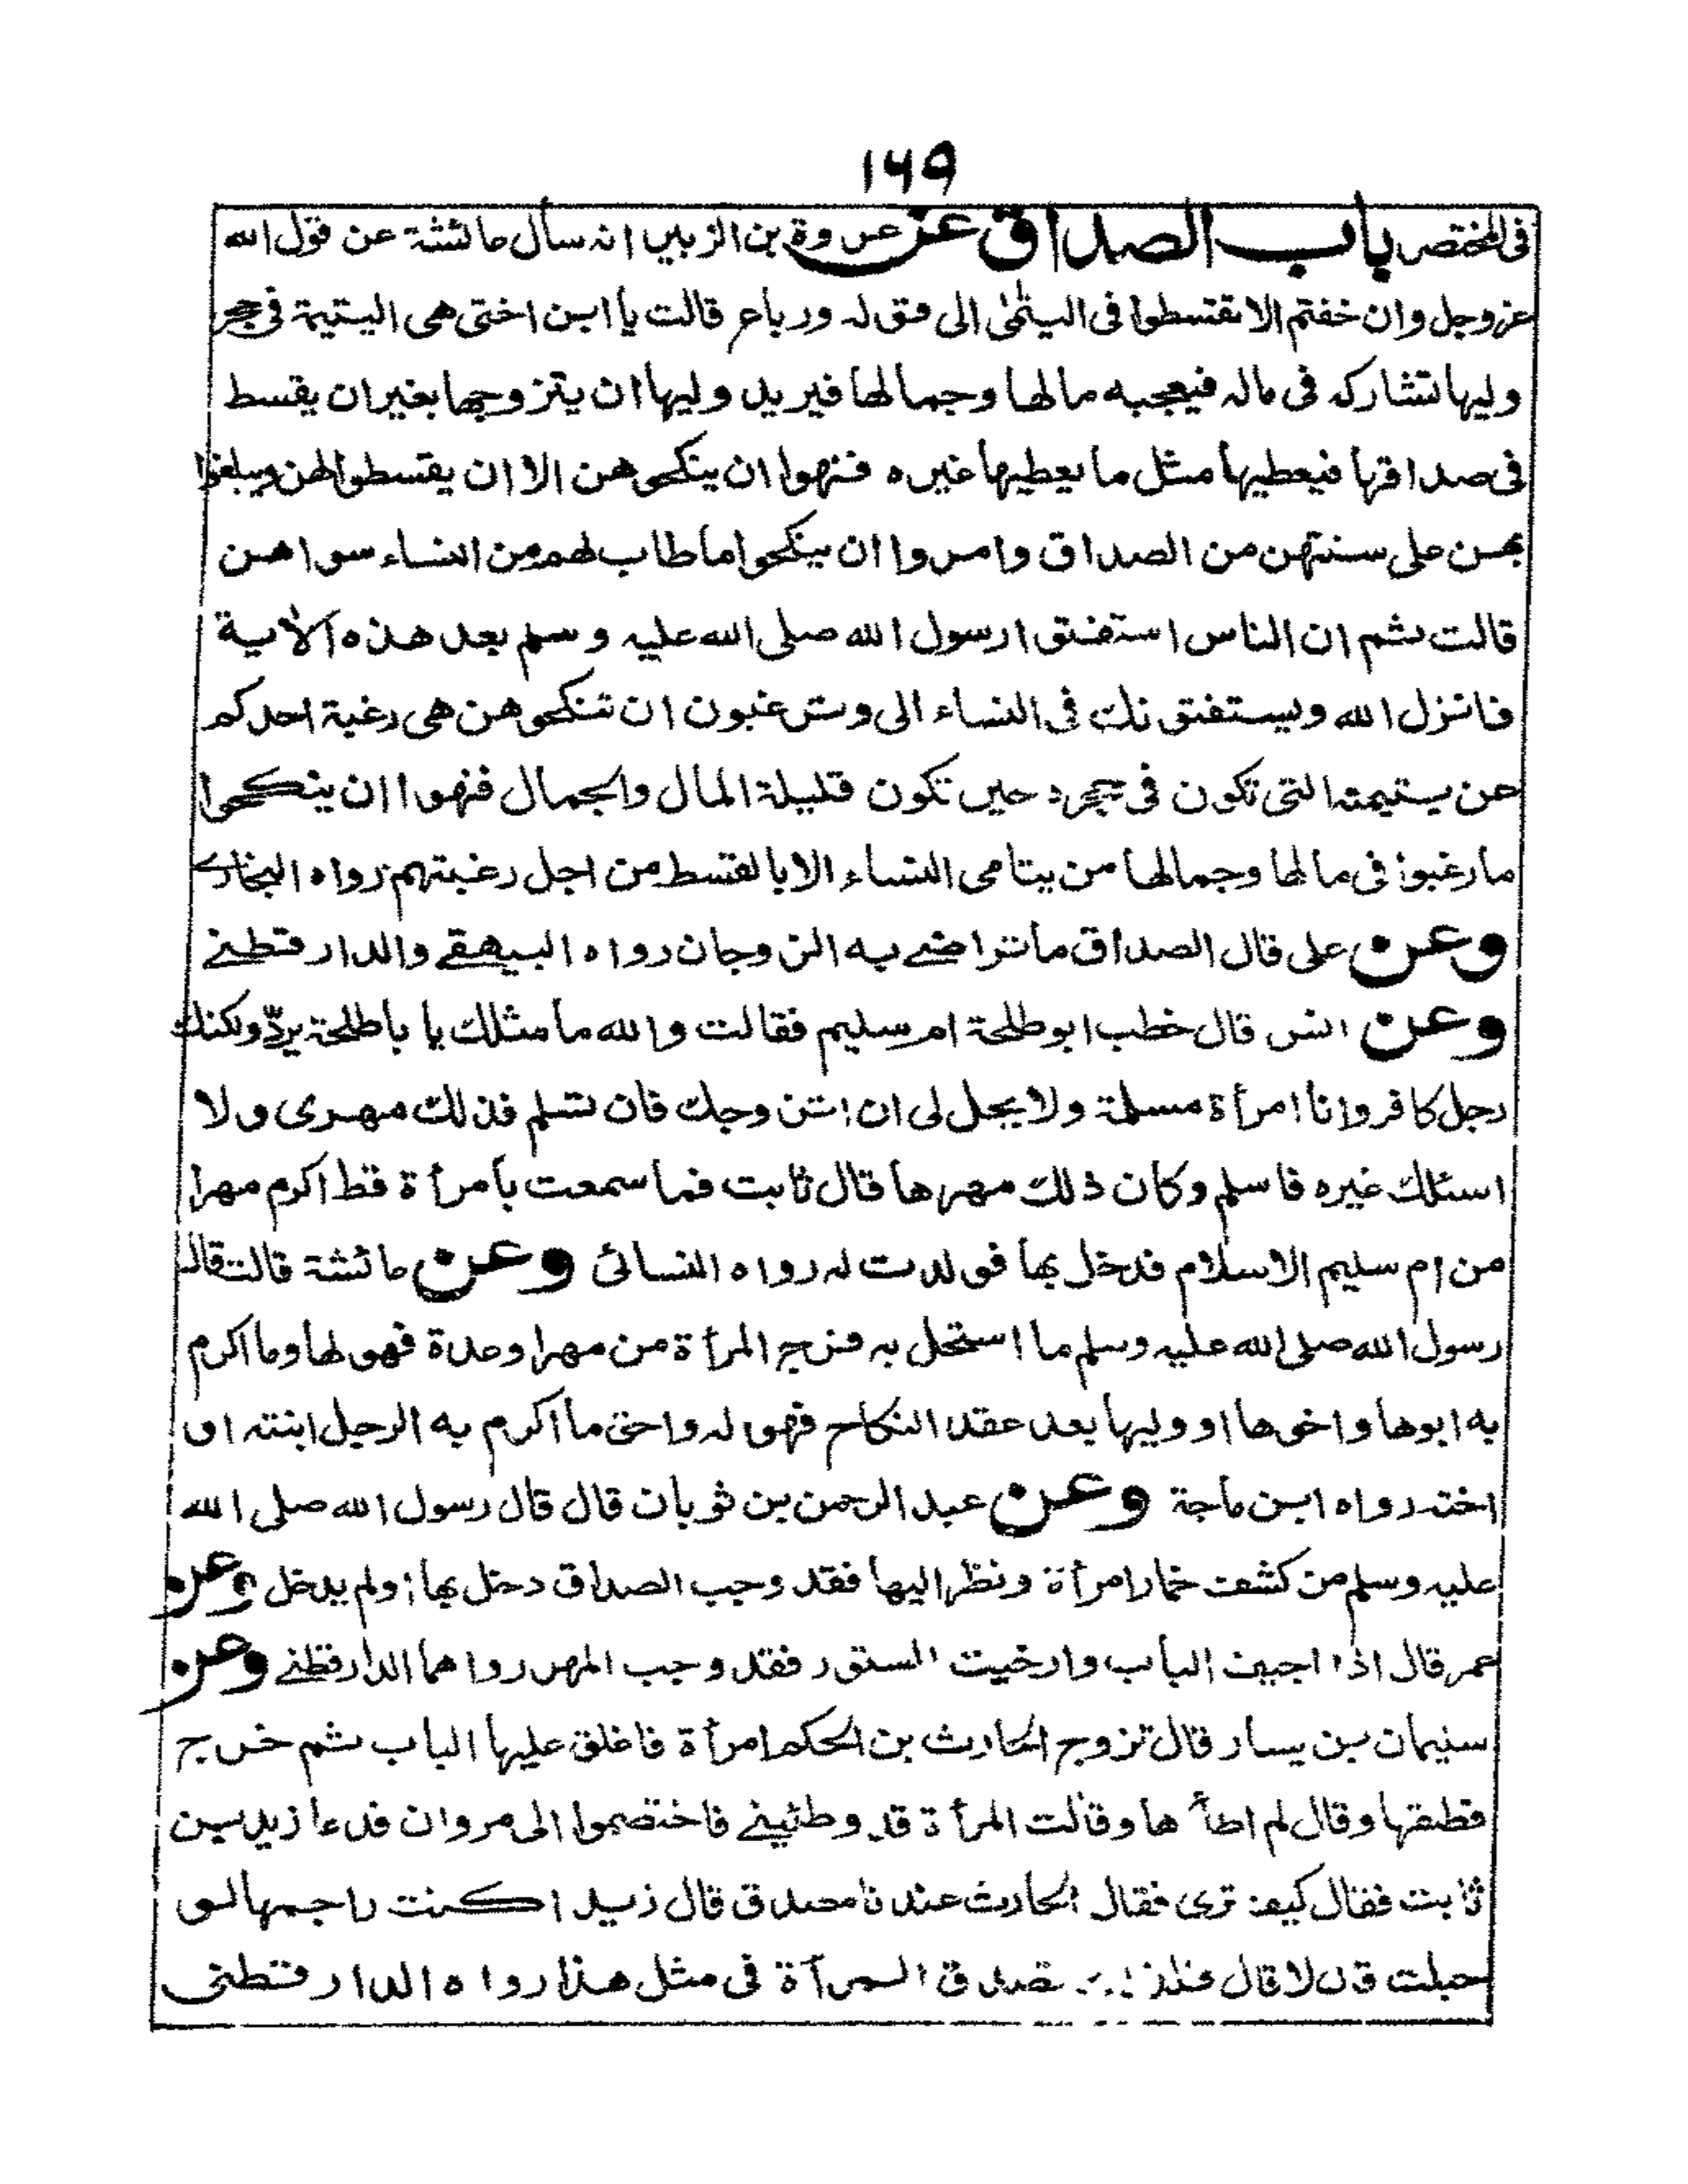 ١٦٩
فى المختصر باب الصداق عن عروة بن الزبير انه سأل عائشة عن قول الله
عز وجل وان خفتم الا تقسطوا فى اليتمٰى الى قوله ورباع قالت يا ابن اختى هى اليتيمة فى حجر
وليها تشاركه فى ماله فيعجبه مالها وجمالها فيريد وليها ان يتزوجها بغير ان يقسط
فى صداقها فيعطيها مثل ما يعطيها غيره فنهوا ان ينكحوهن الا ان يقسطوا لهن ويبلغوا
بهن على سنتهن من الصداق وامروا ان ينكحوا ما طاب لهم من النساء سواهن
قالت ثم ان الناس استفتوا رسول الله صلى الله عليه وسلم بعد هذه الآية
فانزل الله ويستفتونك فى النساء الى وترغبون ان تنكحوهن هى رغبة احدكم
عن يتيمته التى تكون فى حجره حين تكون قليلة المال والجمال فنهوا ان ينكحوا
ما رغبوا فى مالها وجمالها من يتامى النساء الا بالقسط من اجل رغبتهم رواه البخارى
وعن على قال الصداق ما تراضى به الزوجان رواه البيهقى والدارقطنى
وعن انس قال خطب ابو طلحة ام سليم فقالت والله ما مثلك يا باطلحة يردّ ولكنك
رجل كافر وانا امرأة مسلمة ولا يحل لى ان اتزوجك فان تسلم فذلك مهرى ولا
اسئلك غيره فاسلم وكان ذلك مهرها قال ثابت فما سمعت بامرأة قط اكرم مهرا
من ام سليم الاسلام فدخل بها فولدت له رواه النسائى وعن عائشة قالت قال
رسول الله صلى الله عليه وسلم ما استحل به فرج المرأة من مهر او عدة فهو لها وما اكرم
به ابوها واخوها او وليها بعد عقد النكاح فهو له واحق ما اكرم به الرجل ابنته او
اخته رواه ابن ماجة وعن عبد الرحمن بن ثوبان قال قال رسول الله صلى الله
عليه وسلم من كشف خمار امرأة ونظر اليها فقد وجب الصداق دخل بها او لم يدخل وعن
عمر قال اذا اجيف الباب وارخيت الستور فقد وجب المهر رواهما الدارقطنى وعن
سليمان بن يسار قال تزوج الحارث بن الحكم امرأة فاغلق عليها الباب ثم خرج
فطلقها وقال لم اطأها وقالت المرأة قد وطئينى فاختصموا الى مروان فدعا زيد بن
ثابت فقال كيف ترى فقال الحارث عندنا مصدق قال زيد اكنت راجمها لو
حبلت قال لا قال تصدق المرآة فى مثل هذا رواه الدارقطنى